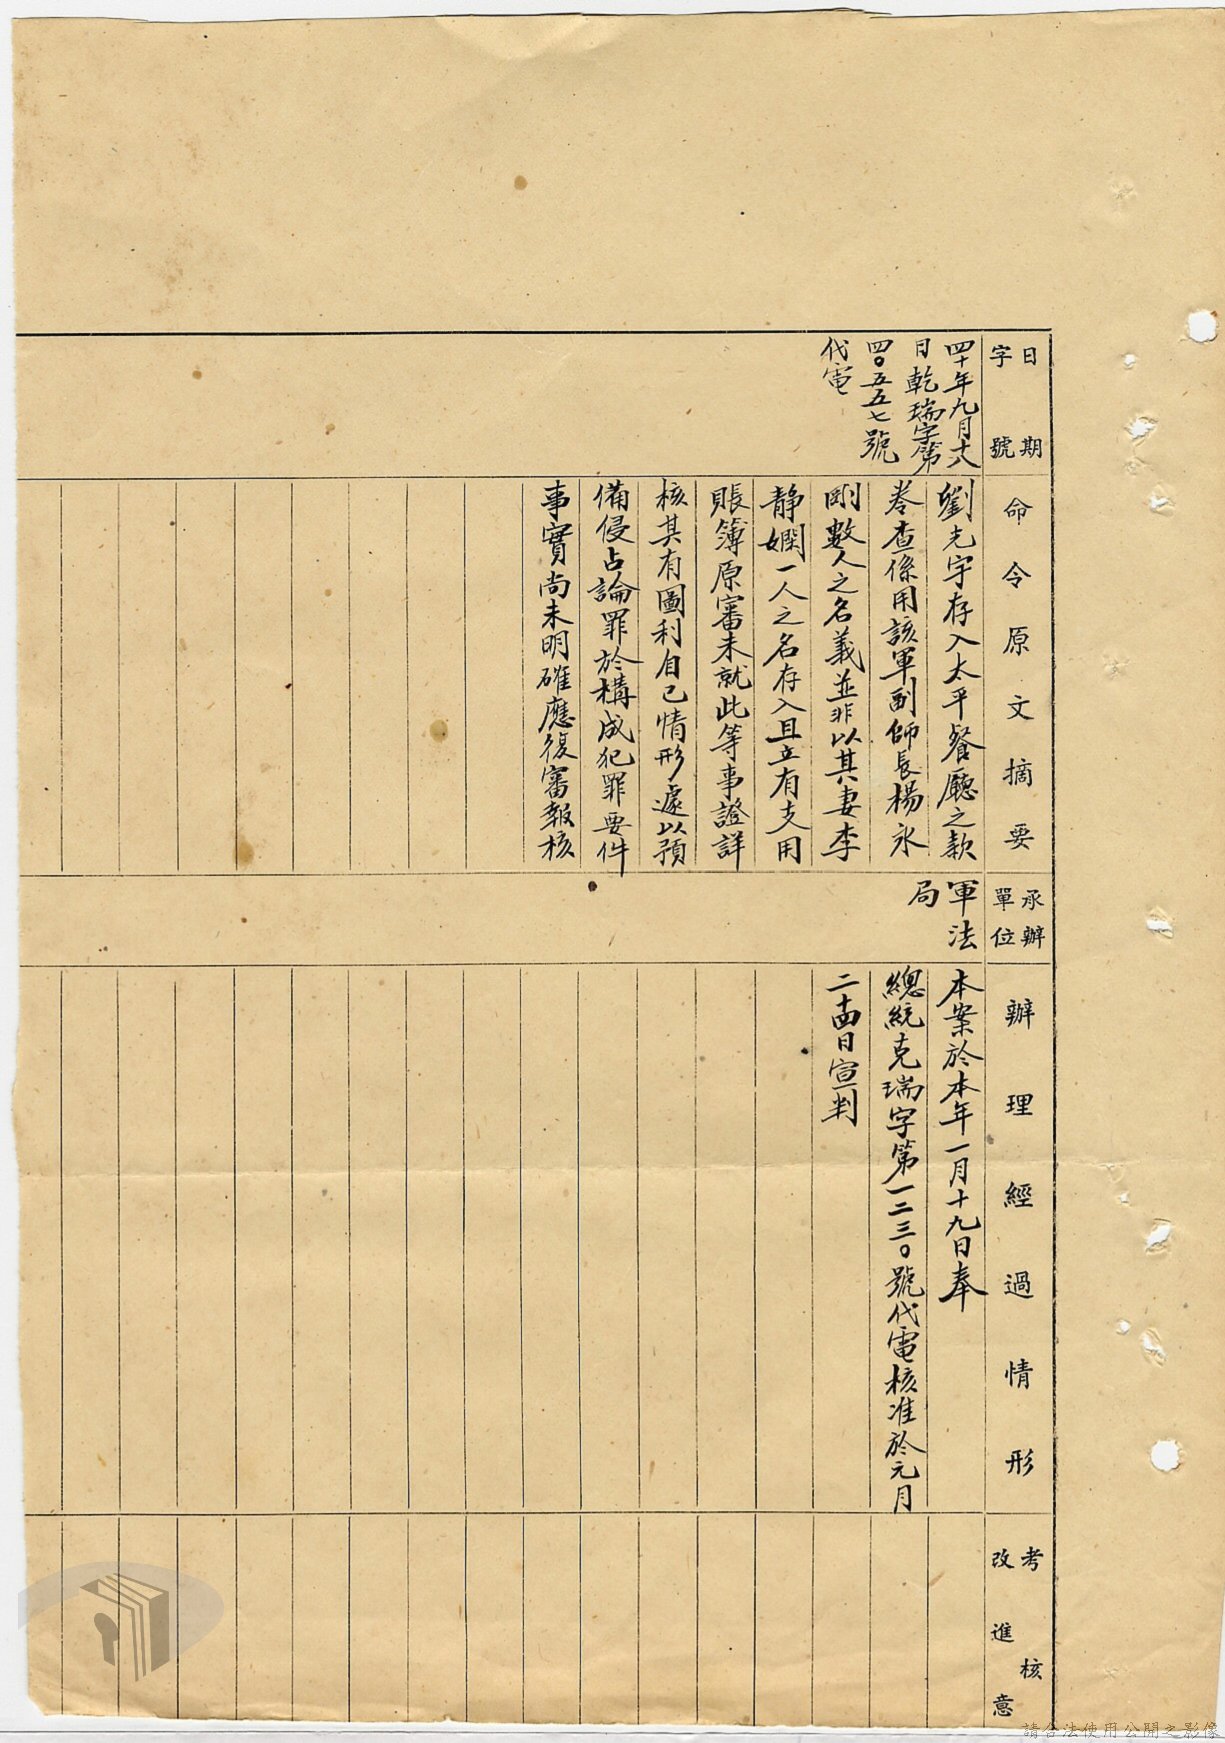 日期
字號
命令原文摘要
承辦
單位
辦理經過情形
考核
改進意
四十年九月十八
日乾瑞字第
四〇五五七號
代電
劉光宇存入太平餐廳之款
卷查係用該軍副師長楊永
剛數人之名義並非以其妻李
靜嫻一人之名存入且立有支用
賬簿原審未就此等事證詳
核其有圖利自己情形遽以預
備侵占論罪於構成犯罪要件
事實尚未明確應復審報核
軍法
局
本案於本年一月十九日奉
總統克瑞字第一二三〇號代電核准於元月
二十四日宣判
請合法使用公開之影像